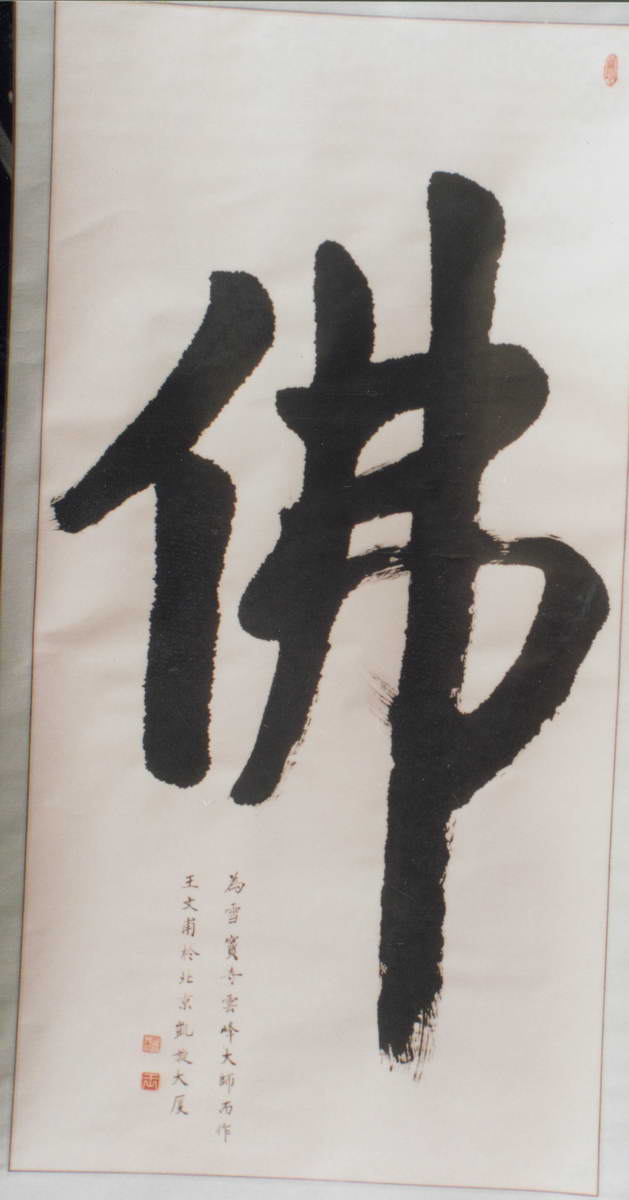 佛
為雪寳寺雲峰大師而作
王文甫於北京凱旋大厦